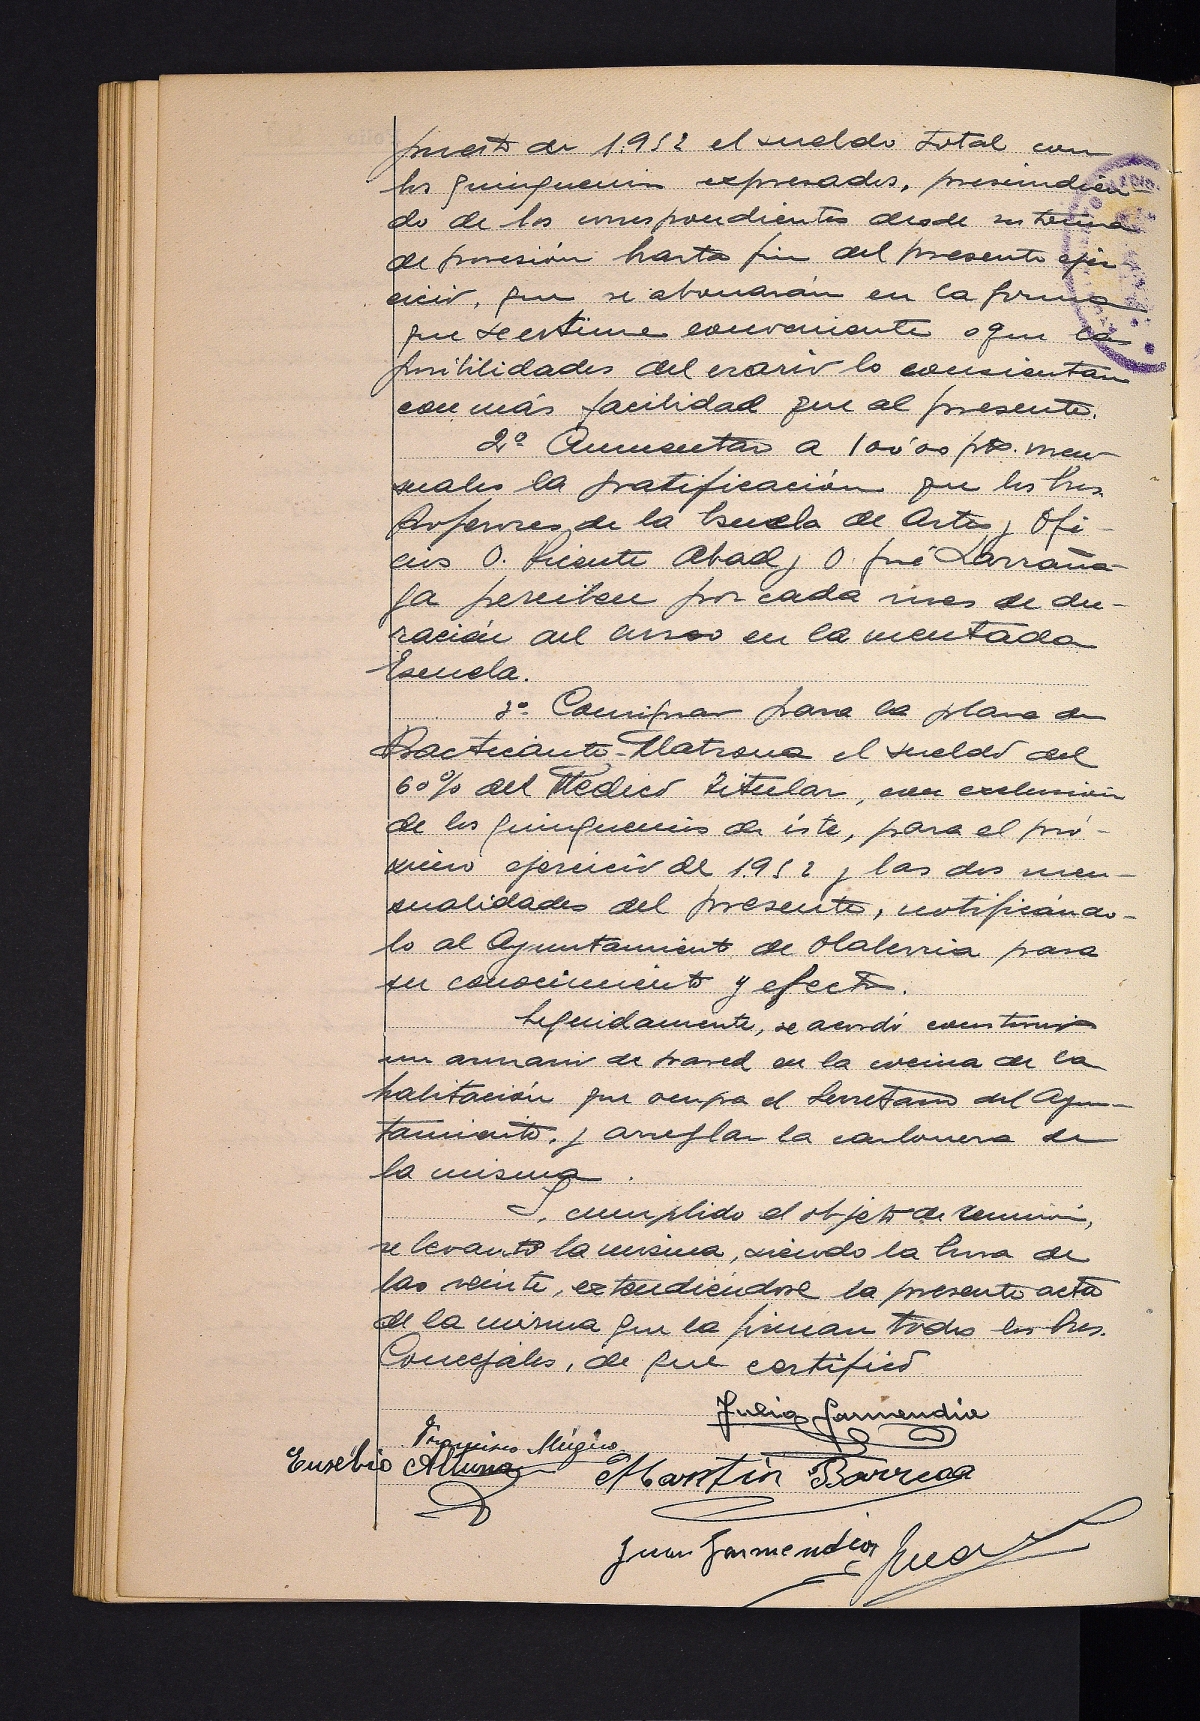 puesto de 1.952 el sueldo total con
los quinquenios expresados, prescindien-
do de los correspondientes desde su toma
de posesión hasta fin del presente ejer
cicio, que se abonarán en la forma
que se estime conveniente o que las
posibilidades del erario lo consientan
con más facilidad que al presente.
2º Aumentar a 100'00 pts. men-
suales la gratificación que los Sres.
Profesores de la Escuela de Artes y Ofi-
cios D. Vicente Abad y D. José Larraña-
ga perciben por cada mes de du-
ración del curso en la mentada
Escuela.
3º Consignar para la plaza de
Practicante-Matrona el sueldo del
60% del Médico Titular, con exclusión
de los quinquenios de éste, para el pró-
ximo ejercicio de 1.952 y las dos men-
sualidades del presente, notificándo-
lo al Ayuntamiento de Olaberria para
su conocimiento y efecto.
Seguidamente, se acordó construir
un armario de pared en la cocina de la
habitación que ocupa el Secretario del Ayun-
tamiento, y arreglar la carbonera de
la misma.
Y, cumplido el objeto de reunión,
se levantó la misma, siendo la hora de
las veinte, extendiéndose la presente acta
de la misma que la firman todos los Sres.
Concejales, de que certifico
Julio Garmendia
Francisco Múgica
Eusebio Altuna Martín Barrena
Juan Garmendia